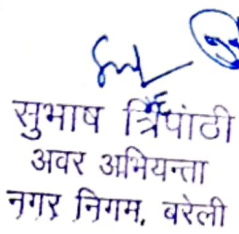 सुभाष त्रिपाठी
अवर अभियन्ता
नगर निगम, बरेली